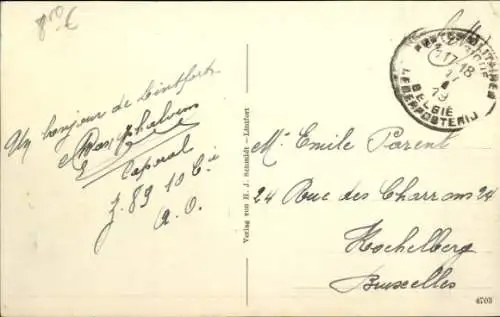 Un bonjour de Lintfort
Caporal
J. 89 10 Cie
A. O.
Verlag von H. J. Schmidt - Lintfort
POSTES MILITAIRES
BELGIQUE
17-18
17
4
19
BELGIË
LEGERPOSTERIJ
Mr Emile Parent
24 Rue des Charrons 24
Koekelberg
Bruxelles
4703